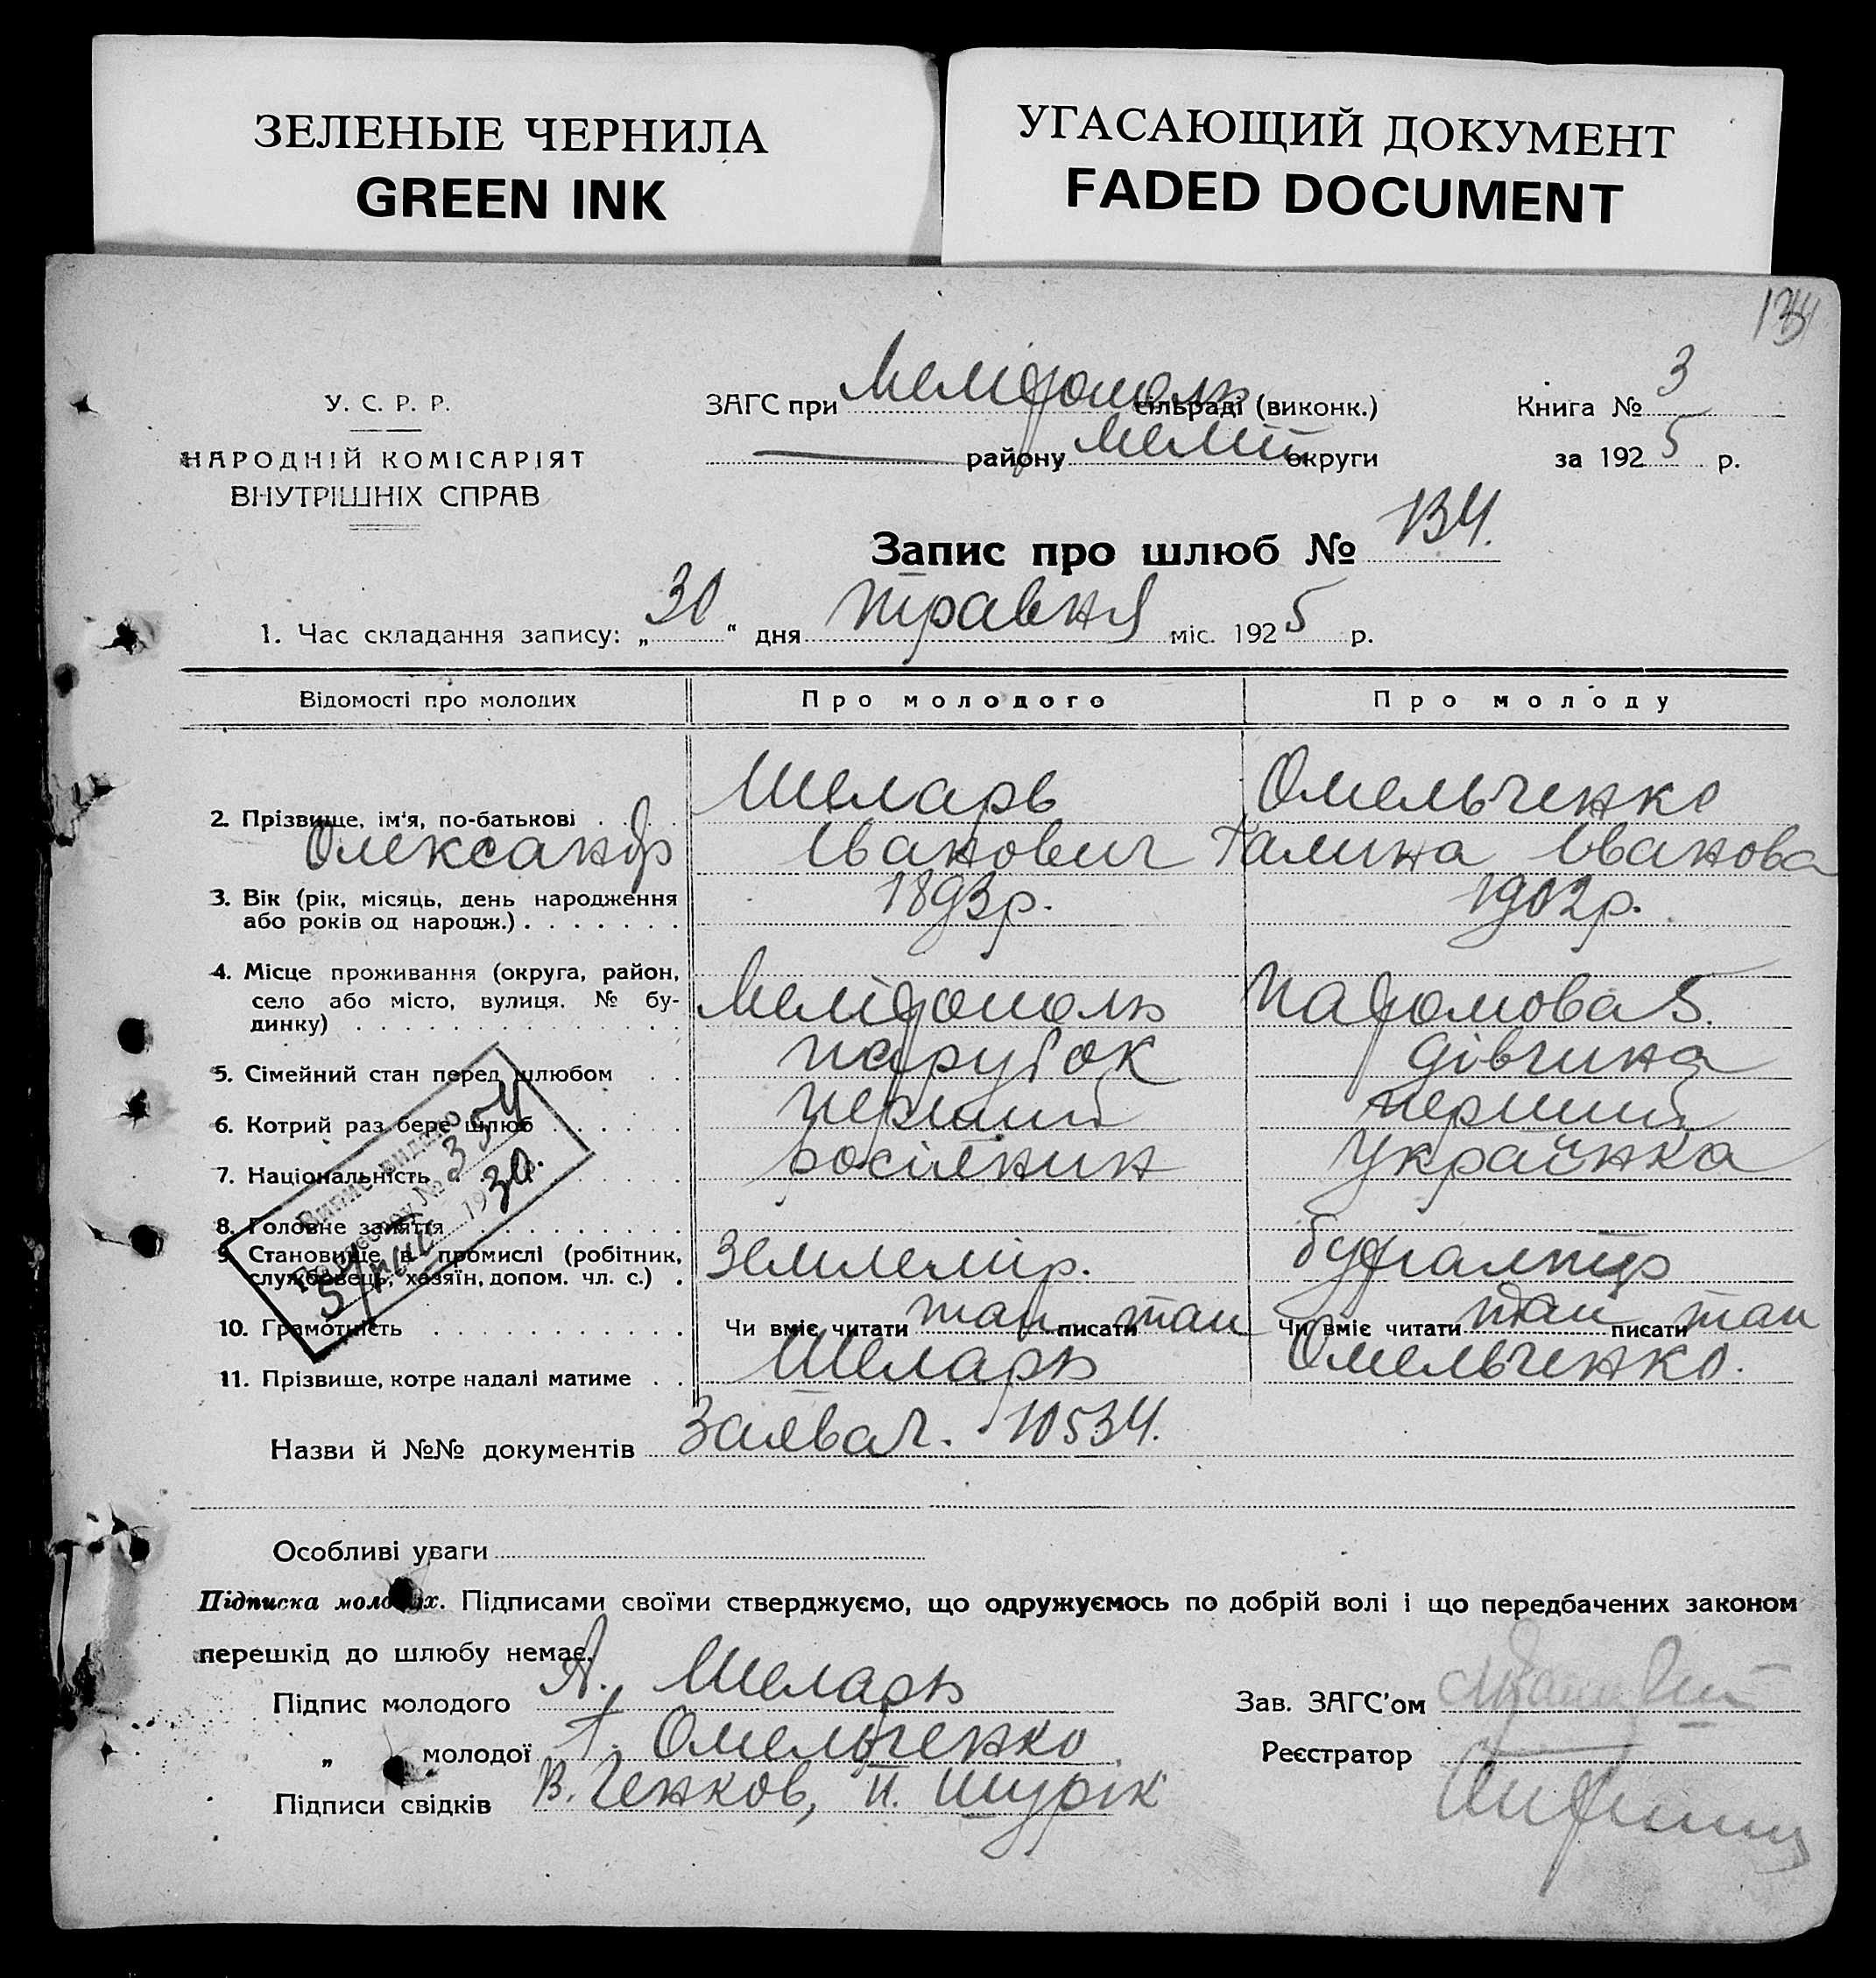 ЗЕЛЕНЫЕ ЧЕРНИЛА
GREEN INK
УГАСАЮЩИЙ ДОКУМЕНТ
FADED DOCUMENT
134
У. С. Р. Р.
НАРОДНІЙ КОМІСАРІЯТ
ВНУТРІШНІХ СПРАВ
ЗАГС при Мелітополь сільраді (виконк.)
району Меліт округи
Книга № 3
за 1925 р.
Запис про шлюб № 134.
1. Час складання запису: „30“ дня травня міс. 1925 р.
Відомості про молодих Про молодого Про молоду
2. Прізвище, ім'я, по-батькові Шеларь Омельченко
Олександр Іванович Галина Іванова
3. Вік (рік, місяць, день народження 1893р. 1902р.
або років од народж.)
4. Місце проживання (округа, район,
село або місто, вулиця. № бу- Мелітополь 5.
динку)
5. Сімейний стан перед шлюбом парубок дівчина
6. Котрий раз бере шлюб перший перший
7. Національність росіянин Українка
8. Головне заняття
9. Становище в промислі (робітник, Землемір. бухгалтер
службовець, хазяїн, допом. чл. с.)
10. Грамотність Чи вміє читати так писати так Чи вміє читати так писати так
11. Прізвище, котре надалі матиме Шеларь Омельченко.
Випис видано
№ 354
5/ 1930.
Назви й №№ документів Заява ч. 10534.
Особливі уваги
Підписка молодих. Підписами своїми стверджуємо, що одружуємось по добрій волі і що передбачених законом
перешкід до шлюбу немає.
Підпис молодого А. Шеларь
Зав. ЗАГС'ом
„ молодої Г. Омельченко
Реєстратор
Підписи свідків В. Ченков, Н. Шурік